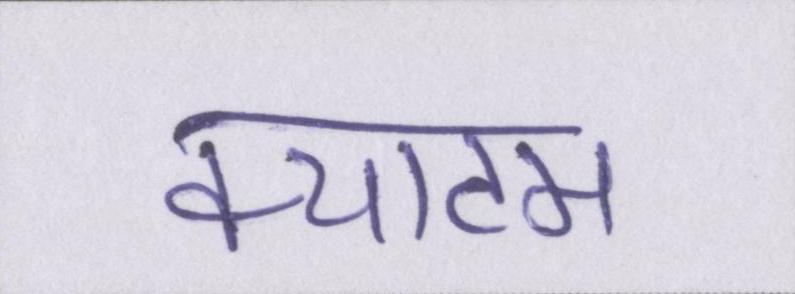 क्याटम